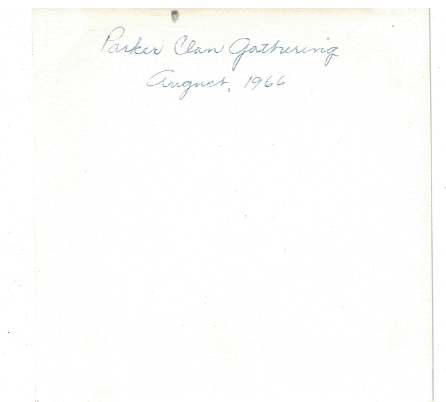 Parker Clan Gathering
August, 1966